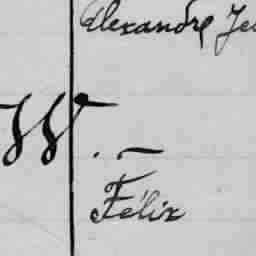 Alexandre Je
W. . —
Félix